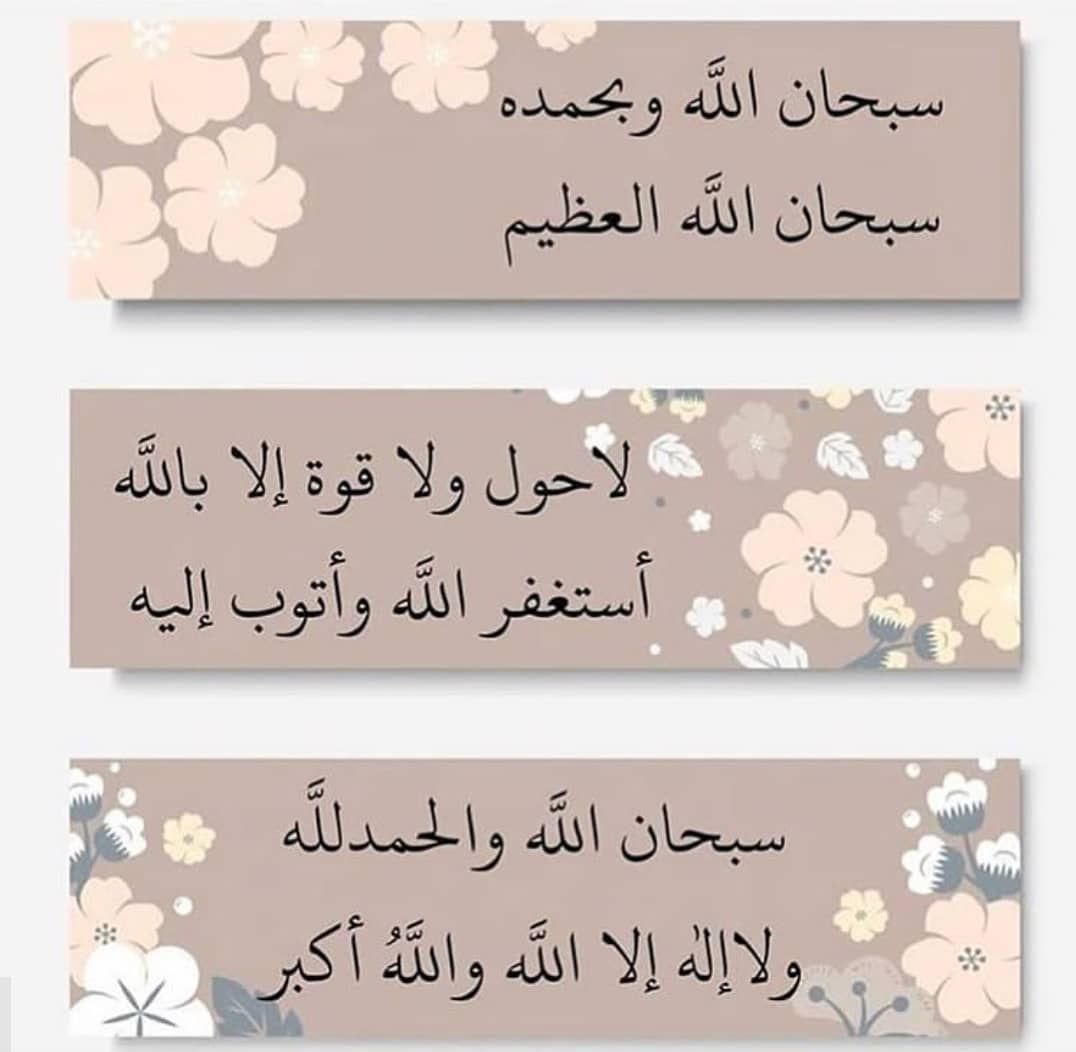 سبحان اللَّه وبحمده
سبحان اللَّه العظيم
لاحول ولا قوة إلا باللَّه
أستغفر اللَّه وأتوب إليه
سبحان اللَّه والحمدللَّه
ولاإلٰه إلا اللَّه واللَّهُ أكبر